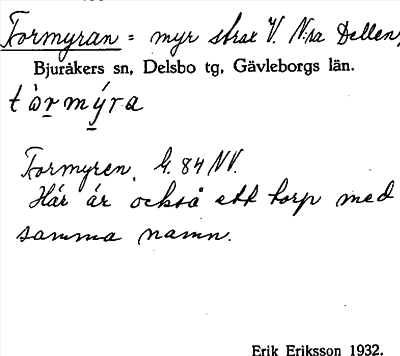 Tormyran = myr strax V. N:ra Dellen,
Bjuråkers sn, Delsbo tg, Gävleborgs län.
tòr̠mý̠ra
Tormyren, G. 84 NV.
Här är också ett torp med
samma namn.
Erik Eriksson 1932.